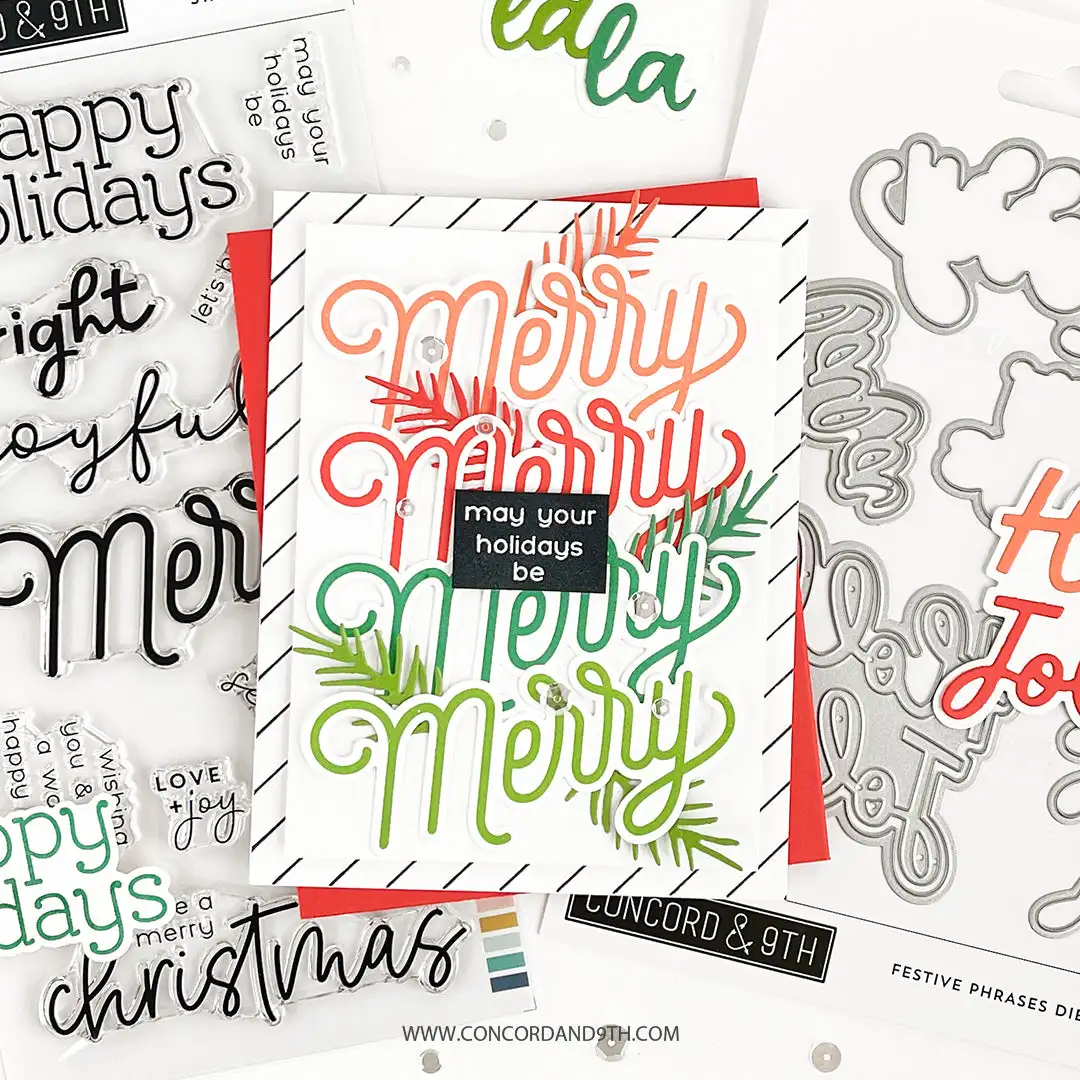 D & 9TH
la
la
may your
holidays
be
appy
olidays
ight
let's b
oyful
Mer
merry
merry
merry
may your
holidays
be
merry
merry
H
Jo
wishing
you &
a wo
happy
LOVE
+joy
ppy
days
e a
merry
christmas
CONCORD & 9TH
FESTIVE PHRASES DIE
WWW.CONCORDAND9TH.COM